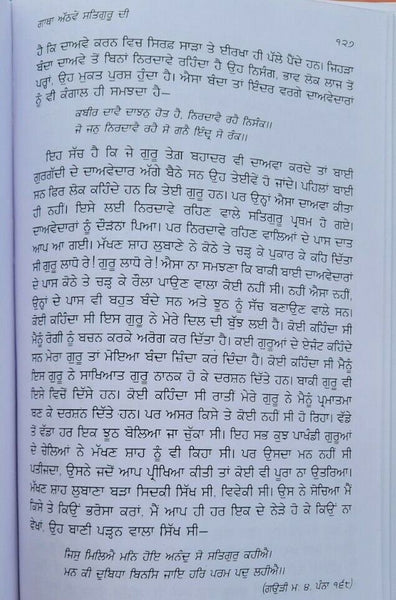 ਗਾਥਾ ਅੱਠਵੇਂ ਸਤਿਗੁਰੂ ਦੀ
੧੨੭
ਹੈ ਕਿ ਦਾਅਵੇ ਕਰਨ ਵਿਚ ਸਿਰਫ਼ ਸਾੜਾ ਤੇ ਈਰਖਾ ਹੀ ਪੱਲੇ ਪੈਂਦੇ ਹਨ। ਜਿਹੜਾ
ਬੰਦਾ ਦਾਅਵੇ ਤੋਂ ਬਿਨਾਂ ਨਿਰਦਾਵੇ ਰਹਿੰਦਾ ਹੈ ਉਹ ਨਿਸੰਗ, ਭਾਵ ਲੋਕ ਲਾਜ ਤੋਂ
ਪਰ੍ਹਾਂ, ਉਹ ਮੁਕਤ ਪੁਰਸ਼ ਹੁੰਦਾ ਹੈ। ਐਸਾ ਬੰਦਾ ਤਾਂ ਇੰਦਰ ਵਰਗੇ ਦਾਅਵੇਦਾਰਾਂ
ਨੂੰ ਵੀ ਕੰਗਾਲ ਹੀ ਸਮਝਦਾ ਹੈ—
ਕਬੀਰ ਦਾਵੈ ਦਾਝਨੁ ਹੋਤ ਹੈ, ਨਿਰਦਾਵੈ ਰਹੈ ਨਿਸੰਕ॥
ਜੋ ਜਨੁ ਨਿਰਦਾਵੈ ਰਹੈ ਸੋ ਗਨੈ ਇੰਦ੍ਰ ਸੋ ਰੰਕ॥
ਇਹ ਸੱਚ ਹੈ ਕਿ ਜੇ ਗੁਰੂ ਤੇਗ਼ ਬਹਾਦਰ ਵੀ ਦਾਅਵਾ ਕਰਦੇ ਤਾਂ ਬਾਈ
ਗੁਰਗੱਦੀ ਦੇ ਦਾਅਵੇਦਾਰ ਅੱਗੇ ਬੈਠੇ ਸਨ ਉਹ ਤੇਈਵੇਂ ਹੋ ਜਾਂਦੇ। ਪਹਿਲਾਂ ਬਾਈ
ਸਨ ਫਿਰ ਲੋਕ ਕਹਿੰਦੇ ਹਨ ਕਿ ਤੇਈ ਗੁਰੂ ਹਨ। ਪਰ ਉਨ੍ਹਾਂ ਐਸਾ ਦਾਅਵਾ ਕੀਤਾ
ਹੀ ਨਹੀਂ। ਇਸੇ ਲਈ ਨਿਰਦਾਵੇ ਰਹਿਣ ਵਾਲੇ ਸਤਿਗੁਰੂ ਪ੍ਰਥਮ ਹੋ ਗਏ।
ਦਾਅਵੇਦਾਰਾਂ ਨੂੰ ਦੌੜਨਾ ਪਿਆ। ਪਰ ਨਿਰਦਾਵੇ ਰਹਿਣ ਵਾਲਿਆਂ ਦੇ ਪਾਸ ਦਾਤ
ਆਪ ਆ ਗਈ। ਮੱਖਣ ਸ਼ਾਹ ਲੁਬਾਣੇ ਨੇ ਕੋਠੇ ਤੇ ਚੜ੍ਹ ਕੇ ਪੁਕਾਰ ਕੇ ਕਹਿ ਦਿੱਤਾ
ਸੀ ਗੁਰੂ ਲਾਧੋ ਰੇ! ਗੁਰੂ ਲਾਧੋ ਰੇ! ਐਸਾ ਨਾ ਸਮਝਣਾ ਕਿ ਬਾਕੀ ਬਾਈ ਦਾਅਵੇਦਾਰਾਂ
ਦੇ ਪਾਸ ਕੋਠੇ ਤੇ ਚੜ੍ਹ ਕੇ ਰੌਲਾ ਪਾਉਣ ਵਾਲਾ ਕੋਈ ਨਹੀਂ ਸੀ। ਨਹੀਂ ਐਸਾ ਨਹੀਂ,
ਉਨ੍ਹਾਂ ਦੇ ਪਾਸ ਵੀ ਬਹੁਤ ਬੰਦੇ ਸਨ ਅਤੇ ਝੂਠ ਨੂੰ ਸੱਚ ਬਣਾਉਣ ਵਾਲੇ ਸਨ।
ਕੋਈ ਕਹਿੰਦਾ ਸੀ ਇਸ ਗੁਰੂ ਨੇ ਮੇਰੇ ਦਿਲ ਦੀ ਬੁੱਝ ਲਈ ਹੈ। ਕੋਈ ਕਹਿੰਦਾ ਸੀ
ਮੈਨੂੰ ਰੋਗੀ ਨੂੰ ਬਚਨ ਕਰਕੇ ਅਰੋਗ ਕਰ ਦਿੱਤਾ ਹੈ। ਕਈ ਗੁਰੂਆਂ ਦੇ ਏਜੰਟ ਕਹਿੰਦੇ
ਸਨ ਮੇਰਾ ਗੁਰੂ ਤਾਂ ਮੋਇਆ ਬੰਦਾ ਜ਼ਿੰਦਾ ਕਰ ਦਿੰਦਾ ਹੈ। ਕੋਈ ਕਹਿੰਦਾ ਸੀ ਮੈਨੂੰ
ਇਸ ਗੁਰੂ ਨੇ ਸਾਖਿਆਤ ਗੁਰੂ ਨਾਨਕ ਹੋ ਕੇ ਦਰਸ਼ਨ ਦਿੱਤੇ ਹਨ। ਬਾਕੀ ਗੁਰੂ ਵੀ
ਇਸੇ ਵਿਚੋਂ ਦਿੱਸੇ ਹਨ। ਕੋਈ ਕਹਿੰਦਾ ਸੀ ਰਾਤੀਂ ਮੇਰੇ ਗੁਰੂ ਨੇ ਮੈਨੂੰ ਪ੍ਰਮਾਤਮਾ
ਬਣ ਕੇ ਦਰਸ਼ਨ ਦਿੱਤੇ ਹਨ। ਪਰ ਅਸਰ ਕਿਸੇ ਤੇ ਕੋਈ ਨਹੀਂ ਸੀ ਹੋ ਰਿਹਾ। ਵੱਡੇ
ਤੋਂ ਵੱਡਾ ਹਰ ਇਕ ਝੂਠ ਬੋਲਿਆ ਜਾ ਚੁੱਕਾ ਸੀ। ਇਹ ਸਭ ਕੁਝ ਪਾਖੰਡੀ ਗੁਰੂਆਂ
ਦੇ ਚੇਲਿਆਂ ਨੇ ਮੱਖਣ ਸ਼ਾਹ ਨੂੰ ਵੀ ਕਿਹਾ ਸੀ। ਪਰ ਉਸਦਾ ਮਨ ਨਹੀਂ ਸੀ
ਪਤੀਜਦਾ, ਉਸਨੇ ਜਦੋਂ ਆਪ ਪ੍ਰੀਖਿਆ ਕੀਤੀ ਤਾਂ ਕੋਈ ਵੀ ਪੂਰਾ ਨਾ ਉਤਰਿਆ।
ਮੱਖਣ ਸ਼ਾਹ ਲੁਬਾਣਾ ਬੜਾ ਸਿਦਕੀ ਸਿੱਖ ਸੀ, ਵਿਵੇਕੀ ਸੀ। ਉਸ ਨੇ ਸੋਚਿਆ ਮੈਂ
ਕਿਸੇ ਤੇ ਕਿਉਂ ਭਰੋਸਾ ਕਰਾਂ, ਮੈਂ ਆਪ ਹੀ ਹਰ ਇਕ ਦੇ ਨੇੜੇ ਹੋ ਕੇ ਕਿਉਂ ਨਾ
ਵੇਖਾਂ, ਉਹ ਬਾਣੀ ਪੜ੍ਹਨ ਵਾਲਾ ਸਿੱਖ ਸੀ—
ਜਿਸੁ ਮਿਲਿਐ ਮਨਿ ਹੋਇ ਅਨੰਦੁ ਸੋ ਸਤਿਗੁਰੁ ਕਹੀਐ।
ਮਨ ਕੀ ਦੁਬਿਧਾ ਬਿਨਸਿ ਜਾਇ ਹਰਿ ਪਰਮ ਪਦੁ ਲਹੀਐ॥
(ਗਉੜੀ ਮ: ੪. ਪੰਨਾ ੧੬੮)